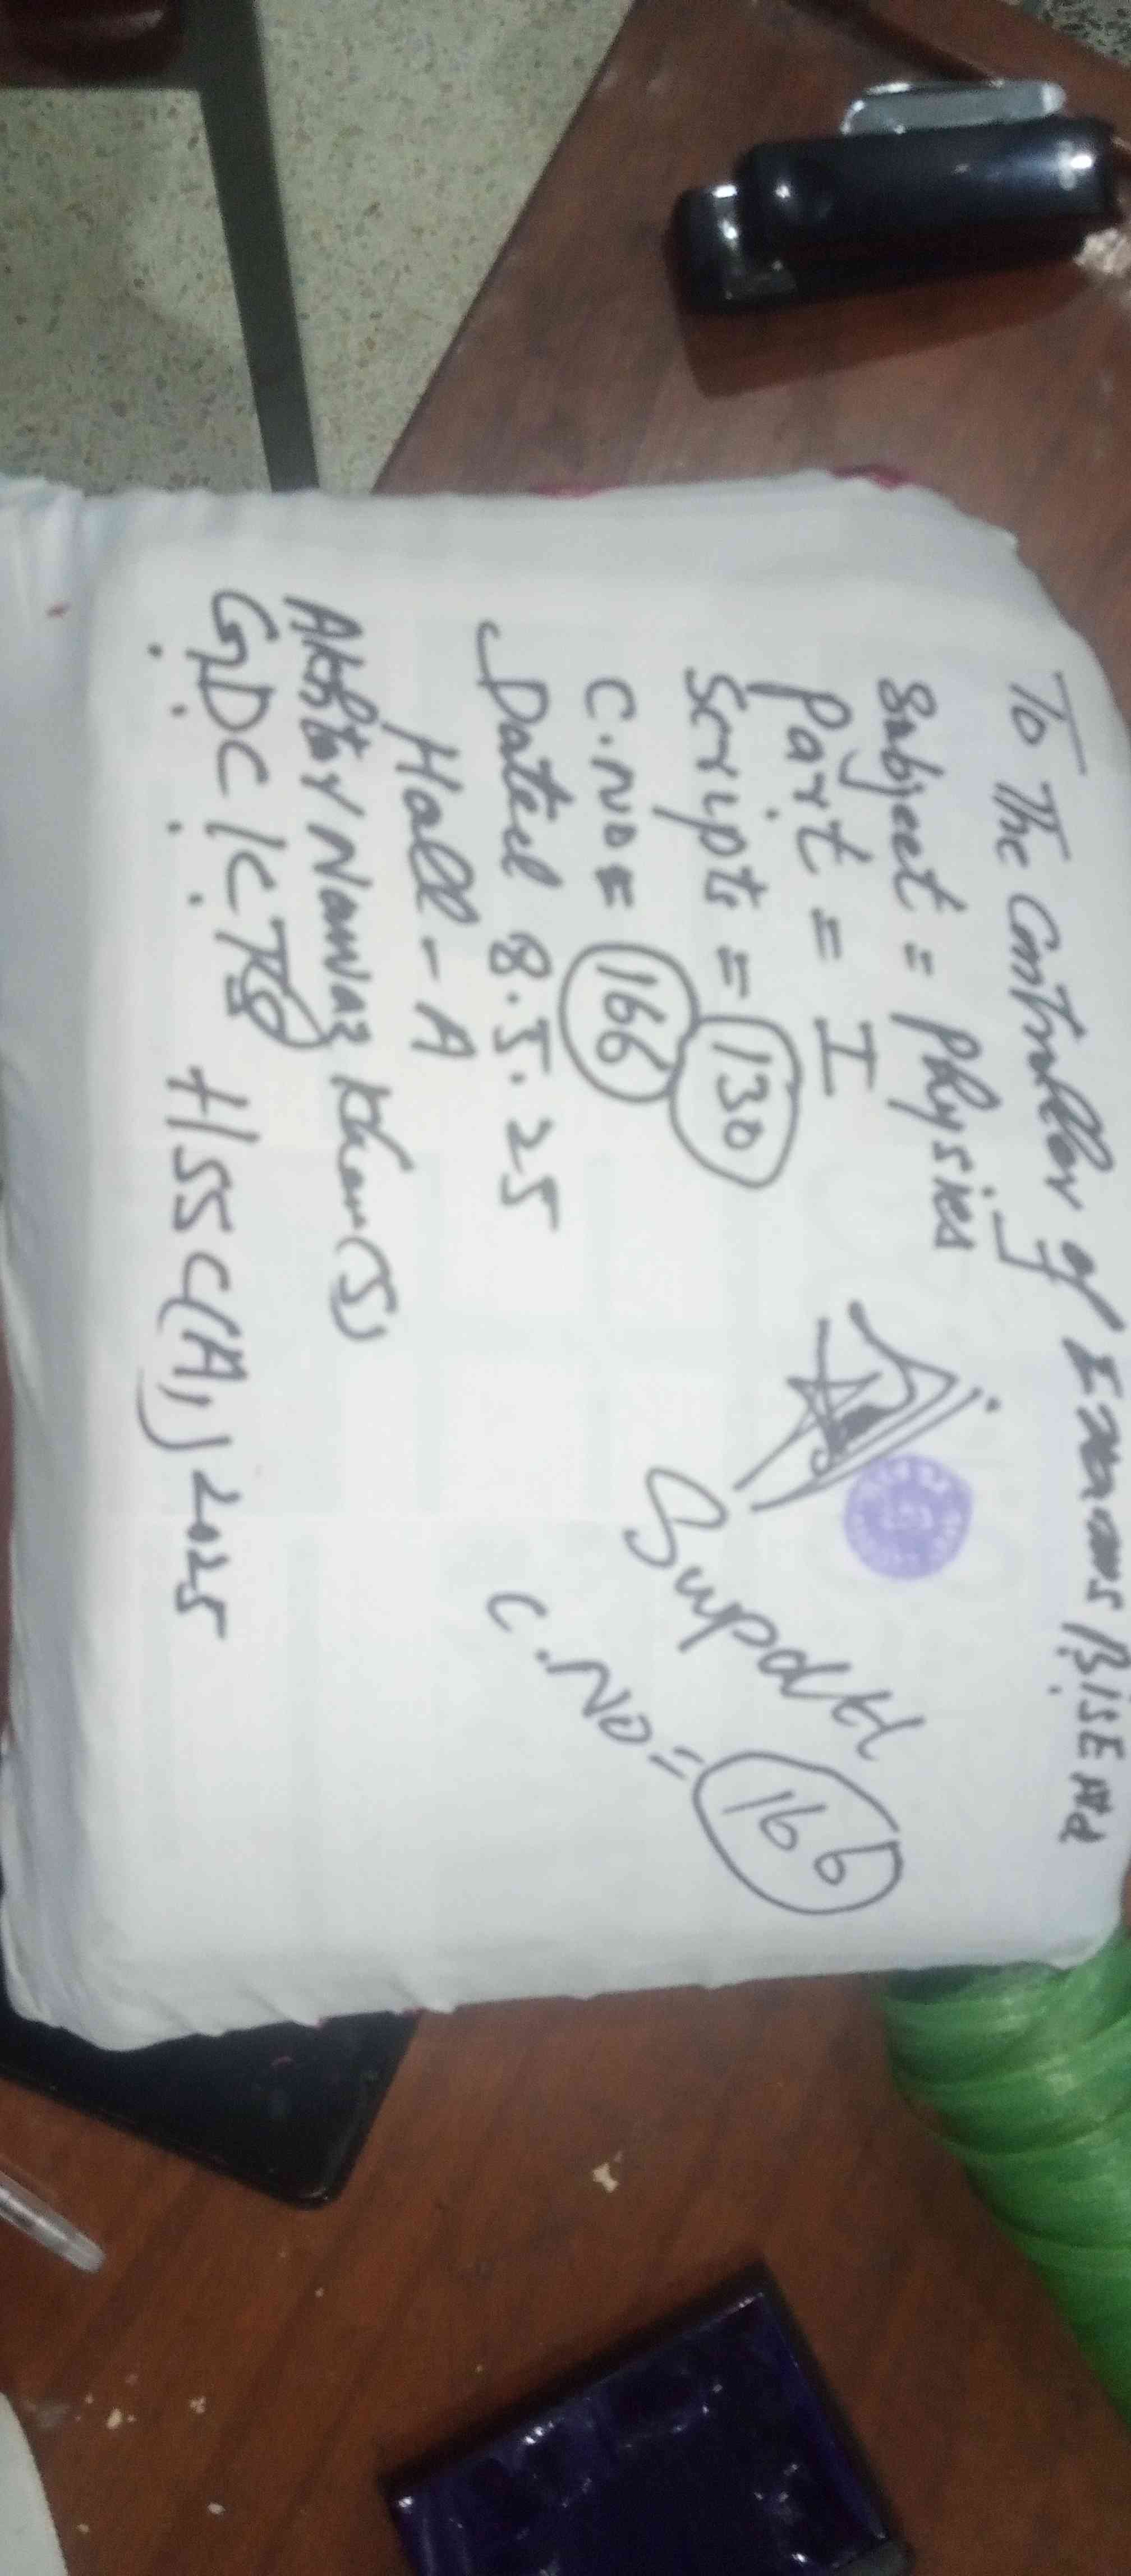 To The Controller of Exams BISE Atd
Subject = Physics
Part = I
Scripts = 130
C.No = 166
Dated 8.5.25
Hall - A
Akhtar Nawaz Khan (S)
G.D.C K.TS
HSSC(A,) 2025
Supdtt
C.No = 166